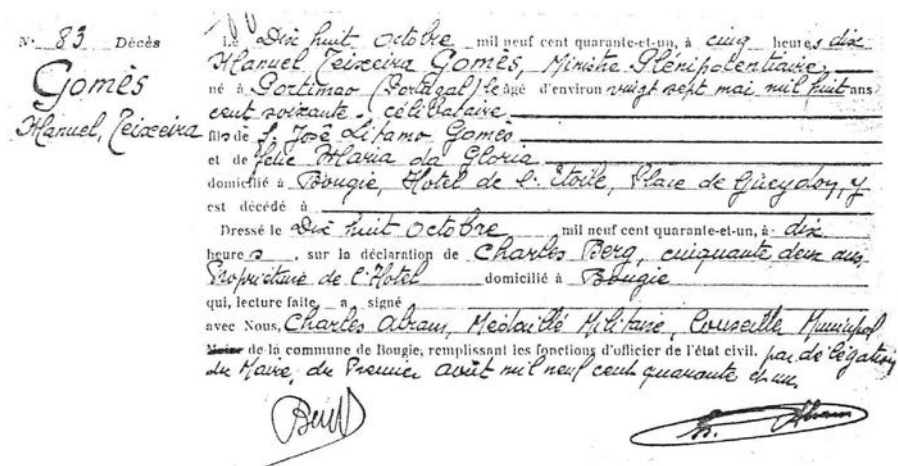 N° 83 Décès
Gomès
Manuel, Teixeira
Le Dix huit octobre mil neuf cent quarante-et-un, à cinq heures dix
Manuel Teixeira Gomès, Ministre Plénipotentiaire,
né à Portimao (Portugal) le âgé d'environ vingt sept mai mil huit ans
cent soixante. célibataire
fils de f. José Libamo Gomès
et de Maria da Gloria
domicilié à Bougie, Hotel de l'Etoile, Place de Gueydon, y
est décédé à
Dressé le Dix huit Octobre mil neuf cent quarante-et-un, à dix
heures, sur la déclaration de Charles Berg, cinquante deux ans,
Propriétaire de l'Hotel domicilié à Bougie
qui, lecture faite, a signé
avec Nous, Charles Abram, Médaillé Militaire, Conseiller Municipal
Maire de la commune de Bougie, remplissant les fonctions d'officier de l'état civil. par délégation
du Maire, du Premier Août mil neuf cent quarante et un.